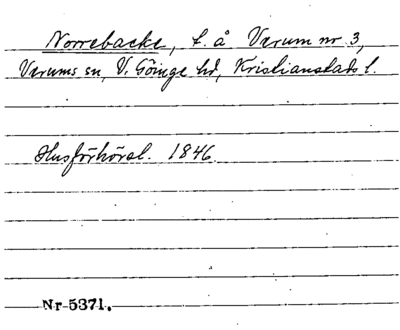 Norrebacke, t. å Verum nr 3,
Verums sn, V. Göinge hd, Kristianstads l.
Husförhörsl. 1846
Nr 5371.